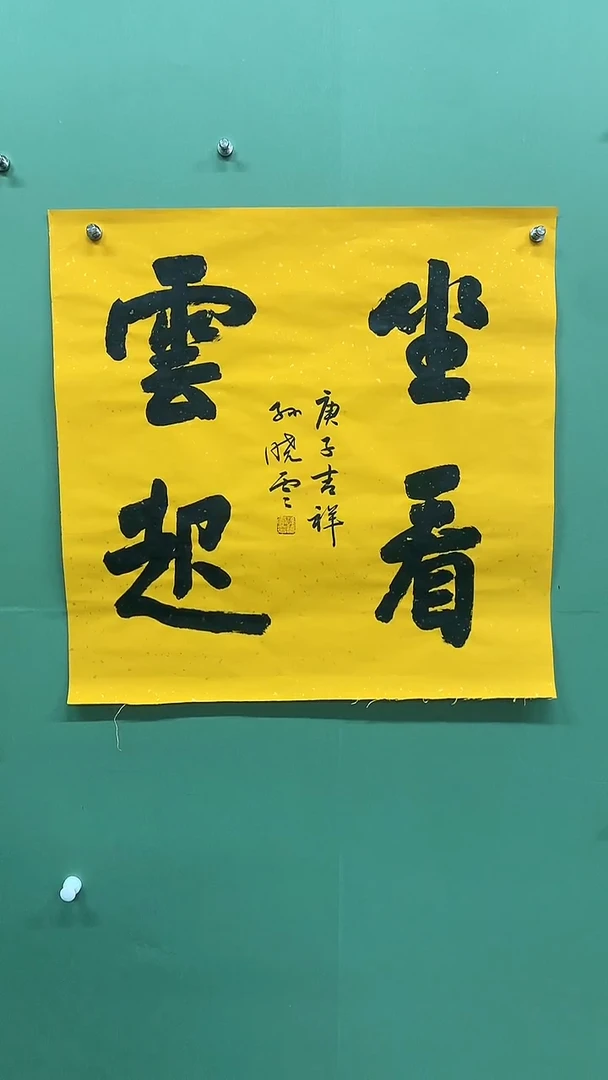 坐看
雲起
庚子吉祥
孙晓云